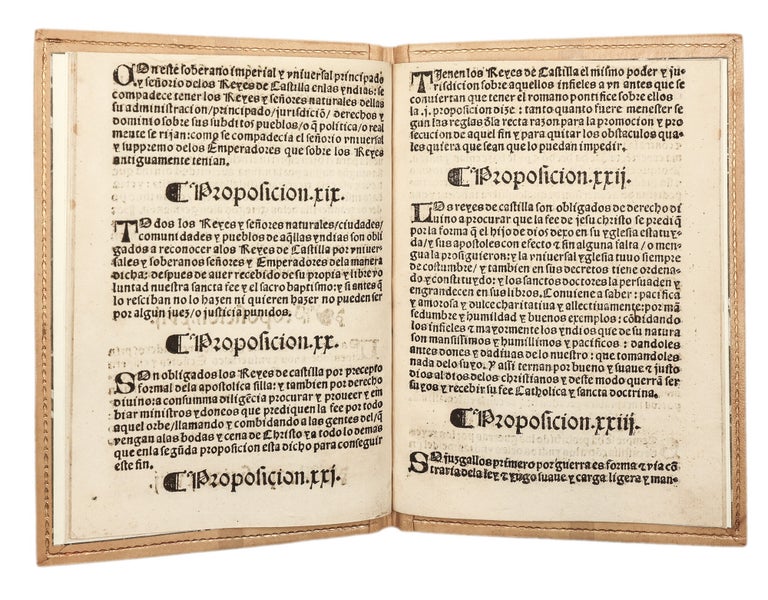 COn este soberano imperial y vniuersal principado
y señorio delos Reyes de Castilla enlas yndias: se
compadece tener los Reyes y señores naturales dellas
su administracion/principado/jurisdiciõ/derechos y
dominio sobre sus subditos pueblos/o q̃ politica/o real
mente se rijan: como se compadecia el señorio vniuersal
y suppremo delos Emperadores que sobre los Reyes
antiguamente tenian.
¶ Proposicion.xix.
TOdos los Reyes y señores naturales/ciudades/
comunidades y pueblos de aq̃llas yndias son obli
gados a reconocer alos Reyes de Castilla por vniuer
sales y soberanos señores y Emperadores dela manera
dicha: despues de auer recebido de su propia y libre vo
luntad nuestra sancta fee y el sacro baptismo: y si antes q̃
lo resciban no lo hazen ni quieren hazer no pueden ser
por algun juez/o justicia punidos.
¶ Proposicion.xx.
SOn obligados los Reyes de castilla por precepto
formal dela apostolica silla: y tambien por derecho
diuino: a consumma diligẽcia procurar y proueer y em
biar ministros ydoneos que prediquen la fee por todo
aquel orbe/llamando y combidando a las gentes del/q̃
vengan alas bodas y cena de Christo/y a todo lo demas
que enla segũda proposicion esta dicho para conseguir
este fin.
¶ Proposicion.xxj.
TIenen los Reyes de Castilla el mismo poder y ju-
risdicion sobre aquellos infieles a vn antes que se
conuiertan que tener el romano pontifice sobre ellos
la .j. proposicion dize: tanto quanto fuere menester se
gun las reglas d̃la recta razon para la promocion y pro
secucion de aquel fin y para quitar los obstaculos qua-
les quiera que sean que lo puedan impedir.
¶ Proposicion.xxij.
LOs reyes de castilla son obligados de derecho di
uino a procurar que la fee de jesu christo se prediq̃
por la forma q̃ el hijo de dios dexo en su yglesia estatuy-
da/y sus apostoles con efecto & sin alguna falta/o men-
gua la prosiguieron: y la vniuersal yglesia tuuo siempre
de costumbre/y tambien en sus decretos tiene ordena-
do y constituydo: y los sanctos doctores la persuaden y
engrandecen en sus libros. Conuiene a saber: pacifica
y amorosa y dulce charitatiua y allectiuamente: por mã
sedumbre y humildad y buenos exemplos: cõbidando
los infieles & mayormente los yndios que de su natura
son mansissimos & humillimos y pacificos: dandoles
antes dones y dadiuas de lo nuestro: que tomandoles
nada delo suyo. Y assi ternan por bueno y suaue y justo
dios al dios delos christianos y deste modo querrã ser
suyos y recebir su fee Catholica y sancta doctrina.
¶ Proposicion.xxiij.
SOjuzgallos primero por guerra es forma & via cõ
traria dela ley & yugo suaue y carga ligera y man-